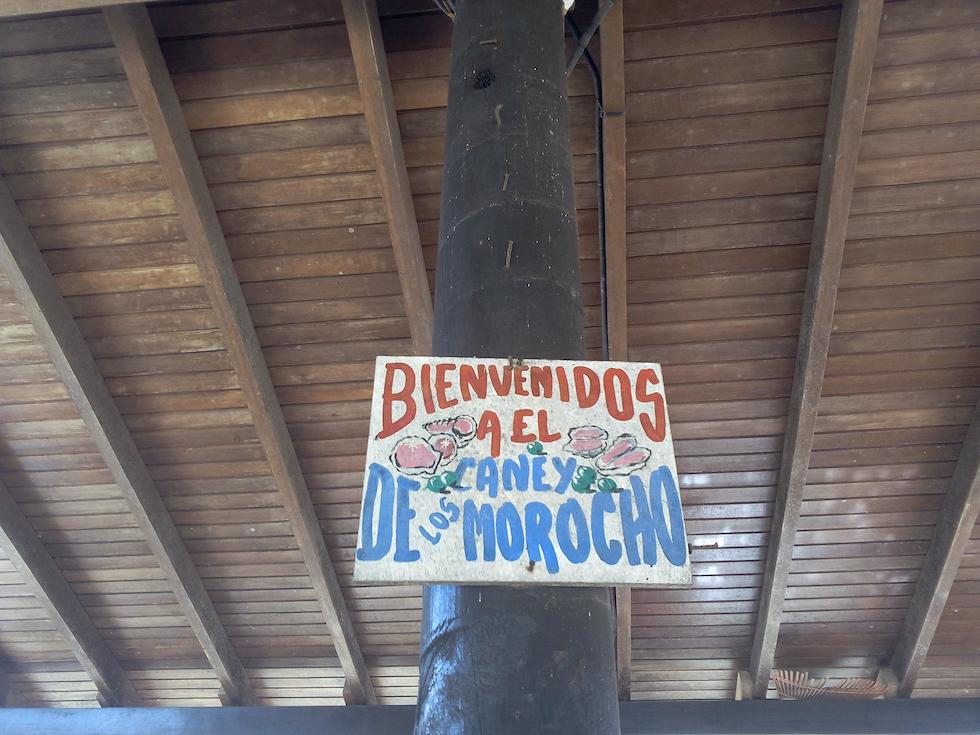 BIENVENIDOS
A EL
CANEY
DE LOS MOROCHO